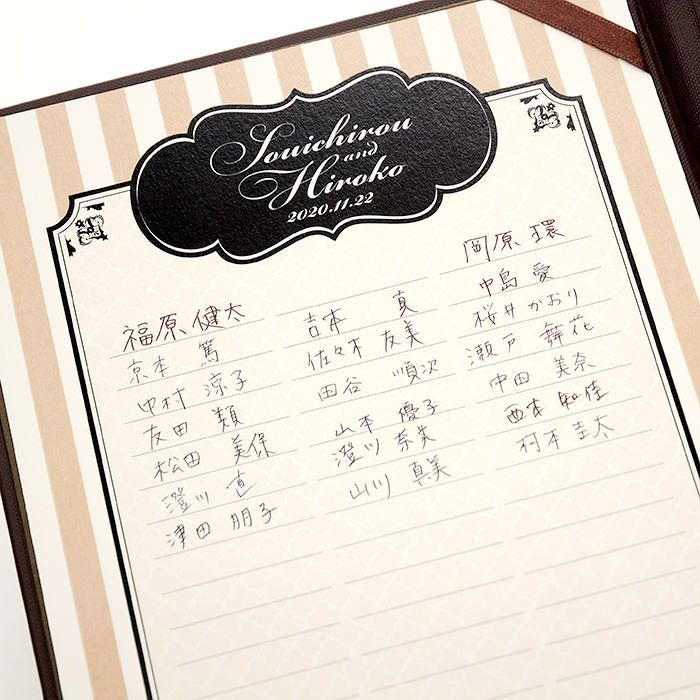 Souichirou
and
Hiroko
2020.11.22
福原 健太
京本 篤
中村 涼子
友田 類
松田 美保
澄川 直
津田 朋子
吉本 真
佐々木 友美
田谷 順次
山本 優子
澄川 奈央
山川 真美
岡原 環
中島 愛
桜井 かおり
瀬戸 舞花
中田 美奈
西本 知佳
村本 圭太